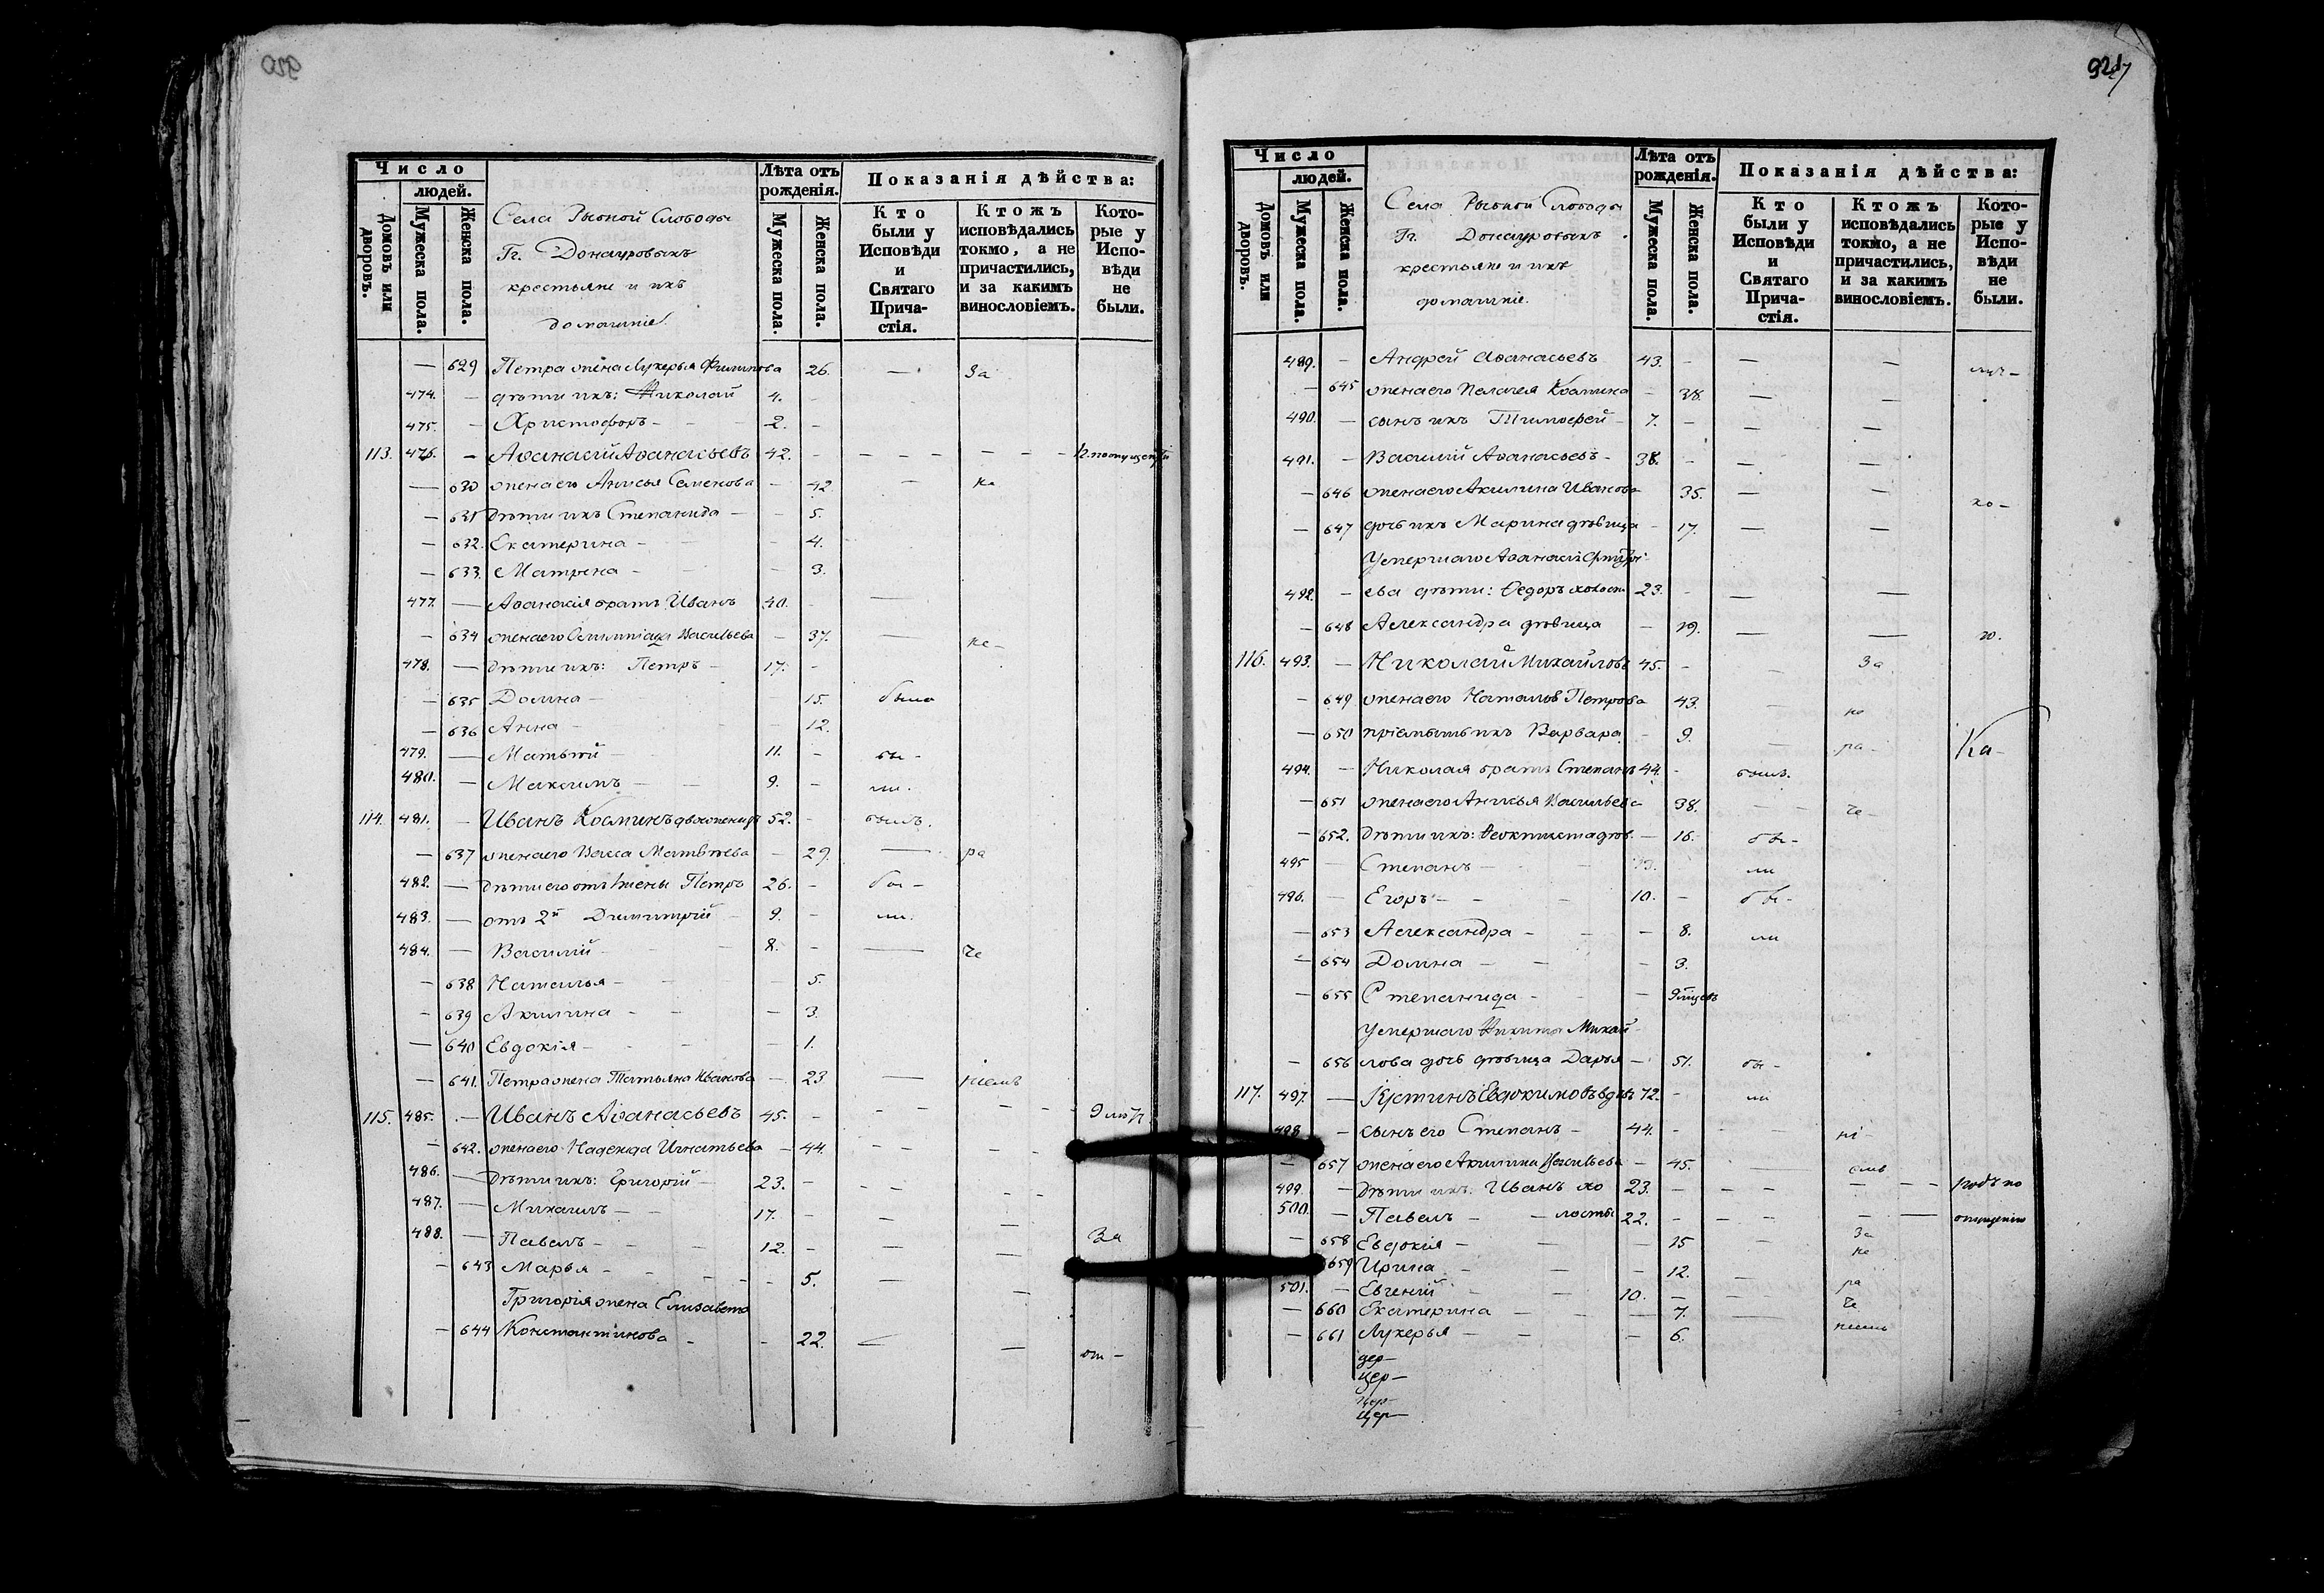 920
Число
людей.
Домовъ или дворовъ.
Мужеска пола.
Женска пола.
Села Рыбной Слободы
Гг. Донауровыхъ
крестьяне и ихъ
домашніе.
Лѣта отъ рожденія.
Мужеска пола.
Женска пола.
Показанія дѣйства:
Кто были у Исповѣди и Святаго Причастія.
Ктожъ исповѣдались токмо, а не причастились, и за какимъ винословіемъ.
Которые у Исповѣди не были.
— 629 Петра жена Лукерья Филипова 26. — За
474. — дѣти ихъ: Николай 4. -
475. — Христофоръ - 2. -
113. 476. - Аѳанасій Аѳанасьевъ 42. - - - - - - -
— 630 жена его Анисья Семенова - 42 — не
— 631 Дѣти ихъ Степанида - - 5.
— 632. Екатерина - - 4.
— 633. Матрена - - 3.
477. — Аѳанасія братъ Иванъ 40. - —
- 634 жена его Олимпіада Васильева - 37. — не-
478. — Дѣти ихъ: Петръ - 17. -
— 635 Домна - 15. была
— 636 Анна - - 12.
479. — Матвѣй - 11. - бы-
480. — Максимъ - 9. - ли.
114. 481. - Иванъ Козминъ двоеженецъ 52. - былъ.
— 637 жена его Васса Матвѣева - 29. — ра
482. — дѣти его отъ 1 жены Петръ 26. - бы-
483. — отъ 2й Димитрій - 9. - ли.
484. — Василій - 8. - — че
- 638 Наталья - - 5.
- 639 Акилина - - 3.
— 640 Евдокія - - 1.
— 641. Петра жена Татьяна Иванова - 23 — ніемъ
115. 485. - Иванъ Аѳанасьевъ 45. - - - - -
- 642. жена его Надежда Игнатьева - 44. - - - -
486. — Дѣти ихъ: Григорій - 23. - - - - -
487. — Михаилъ - - 17. - — —
488. — Павелъ - - - 12. - — — За
- 643 Марья - - - - - 5. — —
Григорія жена Елисавета
- 644 Константинова - - 22. — — от-
921
Число
людей.
Домовъ или дворовъ.
Мужеска пола.
Женска пола.
Села Рыбной Слободы
Гг. Донауровыхъ
крестьяне и ихъ
домашніе.
Лѣта отъ рожденія.
Мужеска пола.
Женска пола.
Показанія дѣйства:
Кто были у Исповѣди и Святаго Причастія.
Ктожъ исповѣдались токмо, а не причастились, и за какимъ винословіемъ.
Которые у Исповѣди не были.
489. - Андрей Аѳанасьевъ 43. - — — луч-
- 645 жена его Пелагея Козмина - 38. — —
490. — сынъ ихъ Тимоѳей - 7. - — —
491. - Василій Аѳанасьевъ - 38. - — —
- 646 жена его Акилина Иванова 35. — — ко-
- 647 дочь ихъ Марина дѣвица - 17. — —
Умершаго Аѳанасія
492. - ева дѣти: Ѳедоръ холост 23. - — —
- 648 Александра дѣвица - 19. — — ю.
116. 493. - Николай Михайловъ 45. - — За
- 649 жена его Наталья Петрова 43. — не
— 650 пріемышъ ихъ Варвара - 9. — ра- Ка-
494. - Николая братъ Степанъ 44. - былъ.
- 651 жена его Анисья Васильева 38. - - че-
- 652. Дѣти ихъ: Ѳеоктиста дѣв. - 16. бы-
495 — Степанъ - - ли
496. — Егоръ - - - 10. - бы-
— 653 Александра - - - 8. ли
- 654 Домна - - - 3.
— 655 Степанида - - -
Умершаго Никиты Михай-
— 656 лова дочь дѣвица Дарья - 51. бы-
117. 497. — Евдокимовъ вдовъ 72. - ли
498 - сынъ его Степанъ - 44. - - - ні-
— 657 жена его Акилина Васильева - 45. - - емъ
499. — Дѣти ихъ: Иванъ хо 23. - - - — - -
500. — Павелъ - - лосты 22. - - - - —
— 658 Евдокія - - — 15 - За не
659 Ирина - - - 12. — ра
501. - Евгеній - - 10. - - - че
— 660 Екатерина - - — 7. —
— 661 Лукерья - - - 6. ніемъ
дер-
цер-
цер-
цер-